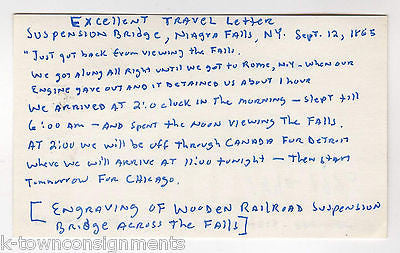 Excellent Travel Letter
Suspension Bridge, Niagra Falls, NY. Sept. 12, 1865
"Just got back from viewing the Falls.
We got along all right until we got to Rome, N.Y. - when our
Engine gave out and it detained us about 1 hour
We arrived at 2:0 clock in the morning - slept till
6:00 AM - and spent the noon viewing the Falls.
At 2:00 we will be off through Canada for Detroit
where we will arrive at 11:00 tonight - then start
tomorrow for Chicago.
[Engraving of Wooden Railroad Suspension
Bridge across the Falls]
k-townconsignments